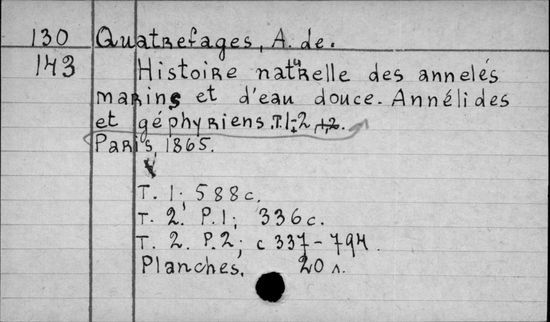 130 Quatrefages, A. de.
143 Histoire naturelle des annelés
marins et d'eau douce. Annélides
et géphyriens. T.1-2
Paris, 1865.
T. 1; 588c.
T. 2. P.1; 336c.
T. 2. P.2; c 337-794.
Planches. 20 л.